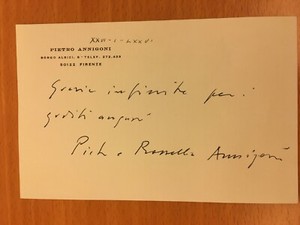 PIETRO ANNIGONI
BORGO ALBIZI, 8 · TELEF. 272.438
50122 FIRENZE
Grazie infinite per i
graditi auguri
Pietro e Rossella Annigoni